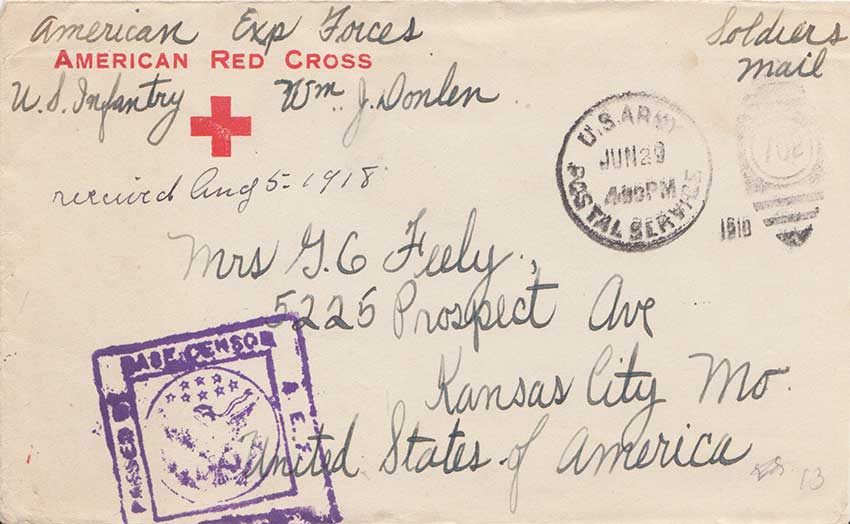 American Exp Forces
Soldiers
Mail
AMERICAN RED CROSS
U.S. Infantry Wm. J. Donlen
received Aug 5-1918
U.S. ARMY
JUN 29
400PM
POSTAL SERVICE
702
Mrs G.C Feely,
5225 Prospect Ave
Kansas City Mo.
United States of America
PASSED BY
BASE CENSOR
A.E.F.
13